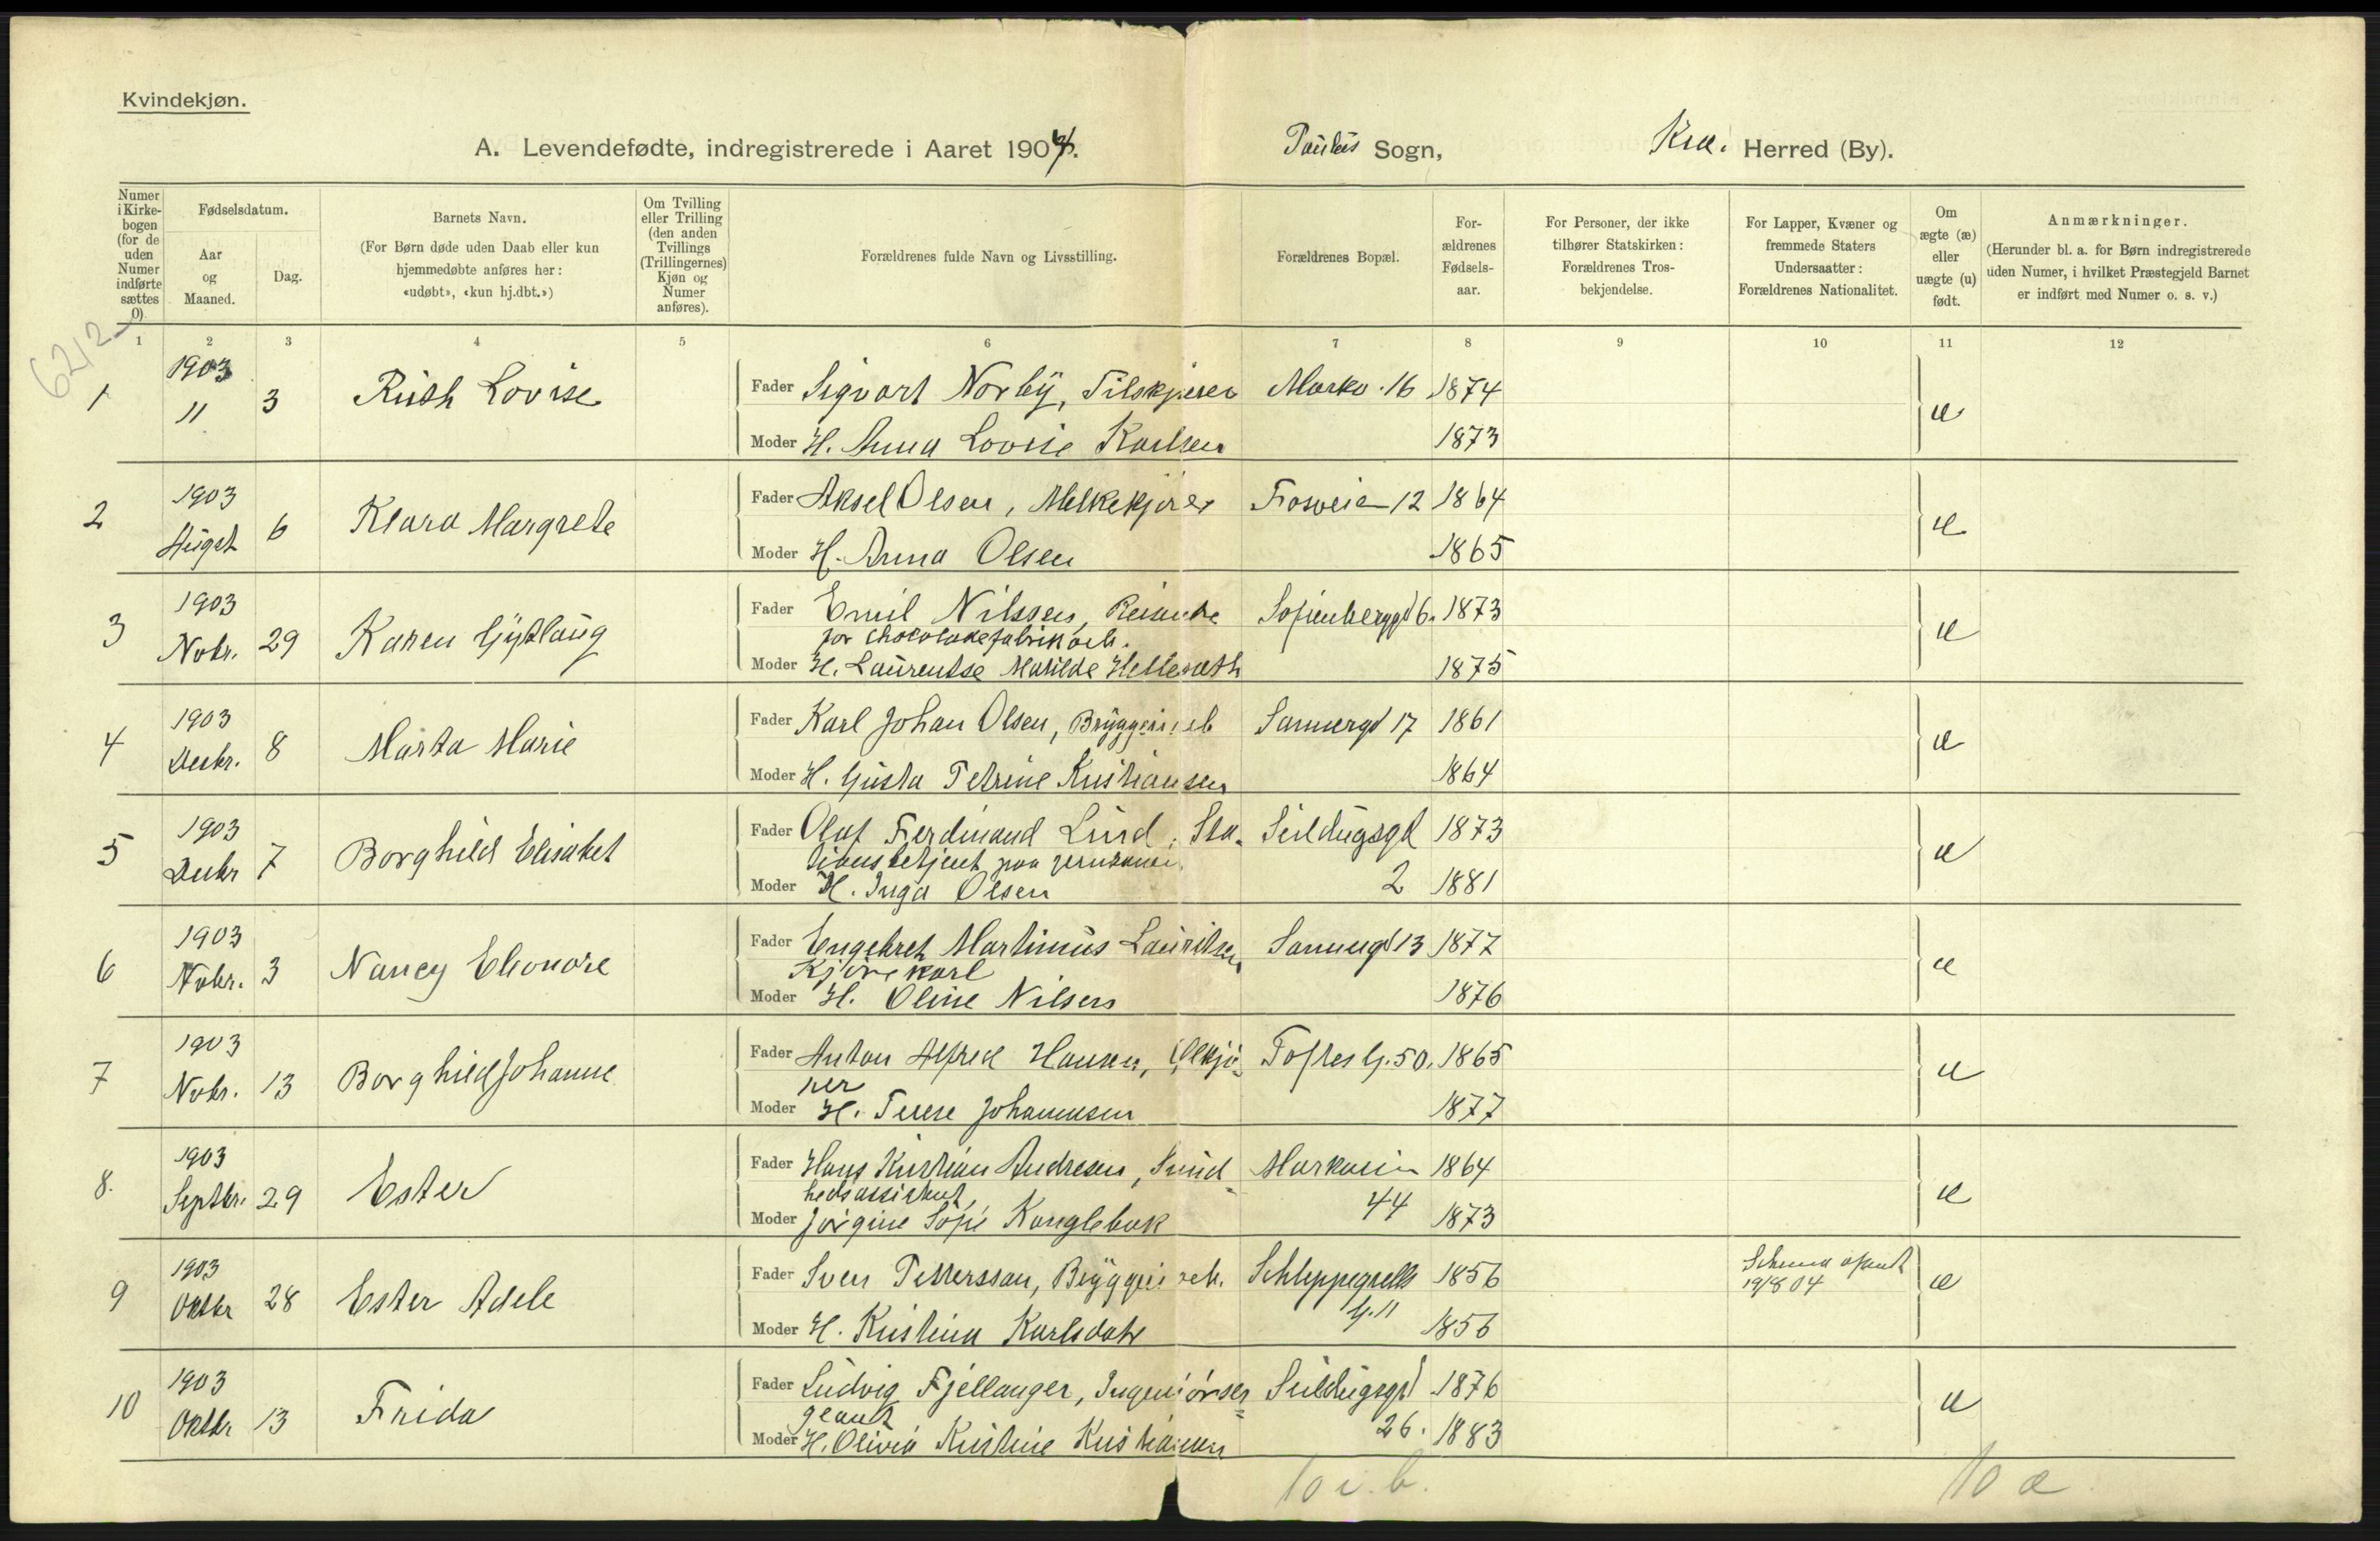 Kvindekjøn.
A. Levendefødte, indregistrerede i Aaret 1904. Paulus Sogn, Kra. Herred (By).
Numer i Kirke-bogen (for de uden Numer indførte sættes 0)
Fødselsdatum.
Aar og Maaned.
Dag.
Barnets Navn.
(For Børn døde uden Daab eller kun hjemmedøbte anføres her: «udøbt», «kun hj.dbt.»)
Om Tvilling eller Trilling (den anden Tvillings (Trillingernes) Kjøn og Numer anføres).
Forældrenes fulde Navn og Livsstilling.
Forældrenes Bopæl.
For-ældrenes Fødsels-aar.
For Personer, der ikke tilhører Statskirken: Forældrenes Tros-bekjendelse.
For Lapper, Kvæner og fremmede Staters Undersaatter: Forældrenes Nationalitet.
Om ægte (æ) eller uægte (u) født.
Anmærkninger.
(Herunder bl. a. for Børn indregistrerede uden Numer, i hvilket Præstegjeld Barnet er indført med Numer o. s. v.)
6212
1 2 3 4 5 6 7 8 9 10 11 12
1 1903 11 3 Ruth Lovise Fader Sigvart Norby, Tilskjærer Markv. 16 1874 æ
Moder H. Anna Lovise Karlsen 1873
2 1903 August 6 Klara Margrete Fader Aksel Olsen, Melkekjører Frosveien 12 1864 æ
Moder H. Anna Olsen 1865
3 1903 Novbr. 29 Karen Gydlaug Fader Emil Nilssen, Reisende Sofienberggd 6. 1873 æ
for chocoladefabrik arb.
Moder H. Laurentse Matilde 1875
4 1903 Decbr. 8 Marta Marie Fader Karl Johan Olsen, Bryggeriarb Sannergd 17 1861 æ
Moder H. Gusta Petrine Kristiansen 1864
5 1903 Decbr 7 Borghild Elisabet Fader Olaf Ferdinand Lund, Sta- Seildugsgd 1873 æ
tionsbetjent paa jernbanen.
Moder H. Inga Olsen 2 1881
6 1903 Novbr. 3 Nancy Elionore Fader Engebret Martinius Lauritsen Sannergd 13 1877 æ
Kjørekarl
Moder H. Oline Nilsen 1876
7 1903 Novbr. 13 Borghild Johanne Fader Anton Alfred Hansen, Ølkjø- Toftes G. 50. 1865 æ
rer
Moder H. Terese Johannesen 1877
8. 1903 Septbr. 29 Ester Fader Hans Kristian Andresen, Sund- Markveien 1864 æ
hedsassistent,
Moder Jørgine Sofie Konglebæk 44 1873
9 1903 Oktbr 28 Ester Adele Fader Sven Pettersson, Bryggeriarb. Schleppegrells 1856 Schema afsendt æ
G. 11 19/8 04
Moder H. Kristina Karlsdatr 1856
10 1903 Oktbr 13 Frida Fader Ludvig Fjellanger, Ingeniørser- Seildugsgd 1876 æ
geant
Moder H. Olivia Kristine Kristiansen 26. 1883
10 i. b. 10 æ